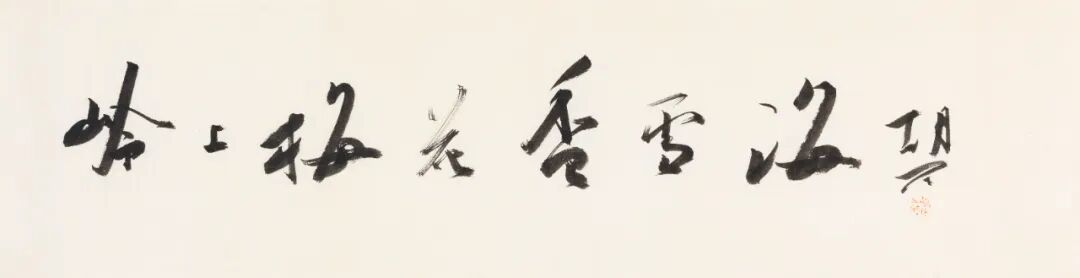 岭上梅花香雪海